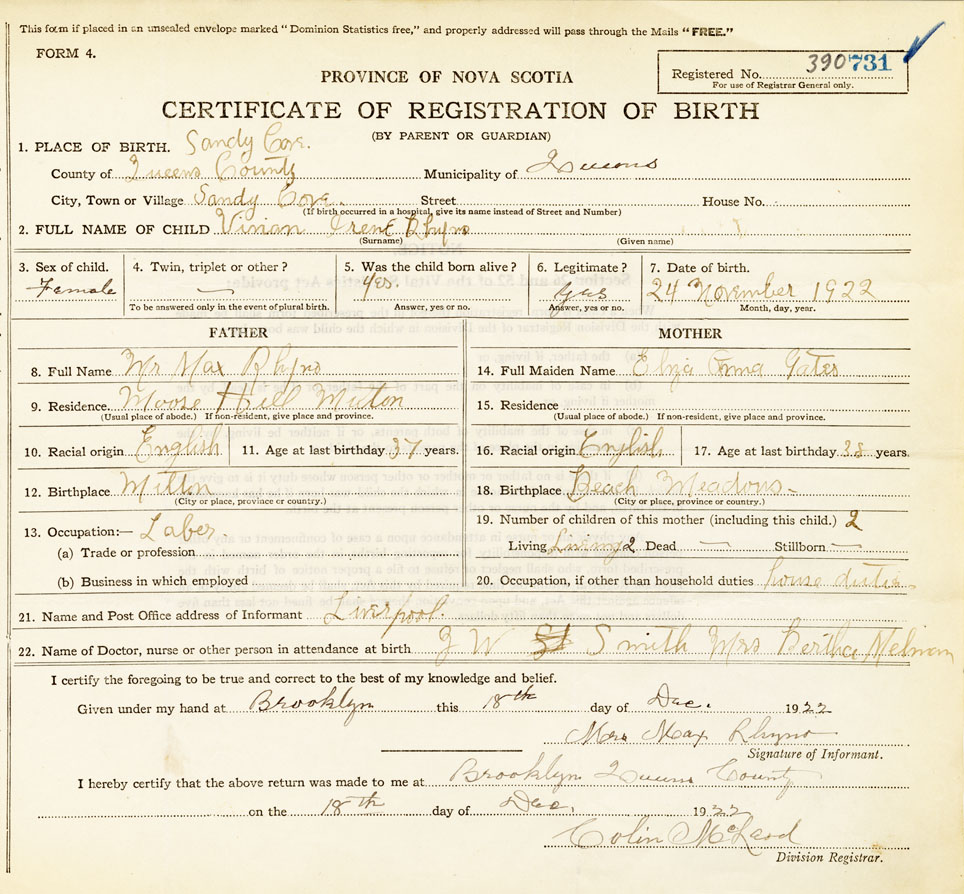 This form if placed in an unsealed envelope marked "Dominion Statistics free," and properly addressed will pass through the Mails "FREE."
FORM 4.
390731
Registered No.
For use of Registrar General only.
PROVINCE OF NOVA SCOTIA
CERTIFICATE OF REGISTRATION OF BIRTH
(BY PARENT OR GUARDIAN)
1. PLACE OF BIRTH. Sandy Cove.
County of Queens County Municipality of Queens
City, Town or Village Sandy Cove. Street House No.
(If birth occurred in a hospital, give its name instead of Street and Number)
2. FULL NAME OF CHILD Vivian Irene Rhyno
(Surname) (Given name)
3. Sex of child. 4. Twin, triplet or other? 5. Was the child born alive? 6. Legitimate? 7. Date of birth.
Female — yes. yes 24 November 1922
To be answered only in the event of plural birth. Answer, yes or no. Answer, yes or no. Month, day, year.
FATHER MOTHER
8. Full Name Mr Max Rhyno 14. Full Maiden Name Eliza Gates
9. Residence. Moose Hill Milton 15. Residence
(Usual place of abode.) If non-resident, give place and province. (Usual place of abode.) If non-resident, give place and province.
10. Racial origin English 11. Age at last birthday 37 years. 16. Racial origin English. 17. Age at last birthday 38 years.
12. Birthplace Milton 18. Birthplace Beach Meadows
(City or place, province or country.) (City or place, province or country.)
13. Occupation:— Laber. 19. Number of children of this mother (including this child.) 2
(a) Trade or profession Living Living 2 Dead — Stillborn —
(b) Business in which employed 20. Occupation, if other than household duties house duties
21. Name and Post Office address of Informant Liverpool.
22. Name of Doctor, nurse or other person in attendance at birth W Smith Mrs Bertha
I certify the foregoing to be true and correct to the best of my knowledge and belief.
Given under my hand at Brooklyn this 18th day of Dec. 1922
Mrs Max Rhyno
Signature of Informant.
I hereby certify that the above return was made to me at Brooklyn Queens County
on the 18th day of Dec. 1922
Colin McLeod
Division Registrar.